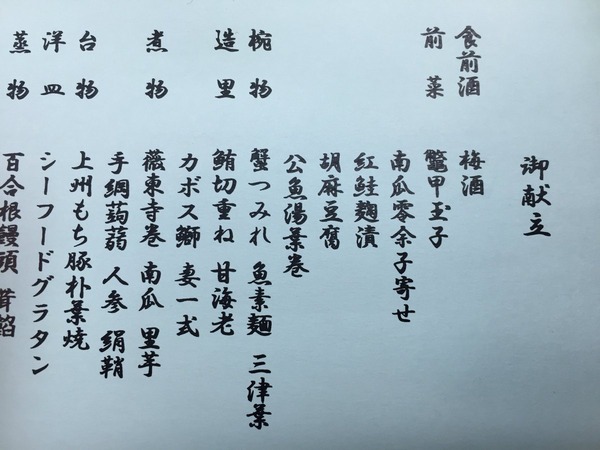 御献立
食前酒 梅酒
前菜 鼈甲玉子
南瓜零余子寄せ
紅鮭麹漬
胡麻豆腐
公魚湯葉巻
椀物 蟹つみれ 魚素麺 三津葉
造里 鮪切重ね 甘海老
カボス鰤 妻一式
煮物 薇東寺巻 南瓜 里芋
手綱蒟蒻 人参 絹鞘
台物 上州もち豚朴葉焼
洋皿 シーフードグラタン
蒸物 百合根饅頭 茸餡